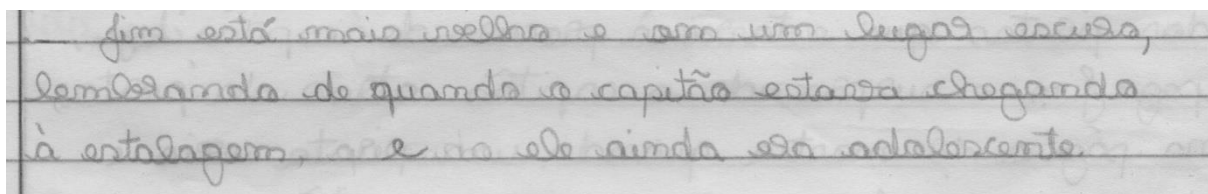 Jim está mais velho e em um lugar escuro,
lembrando de quando o capitão estava chegando
à estalagem, e ele ainda era adolescente.